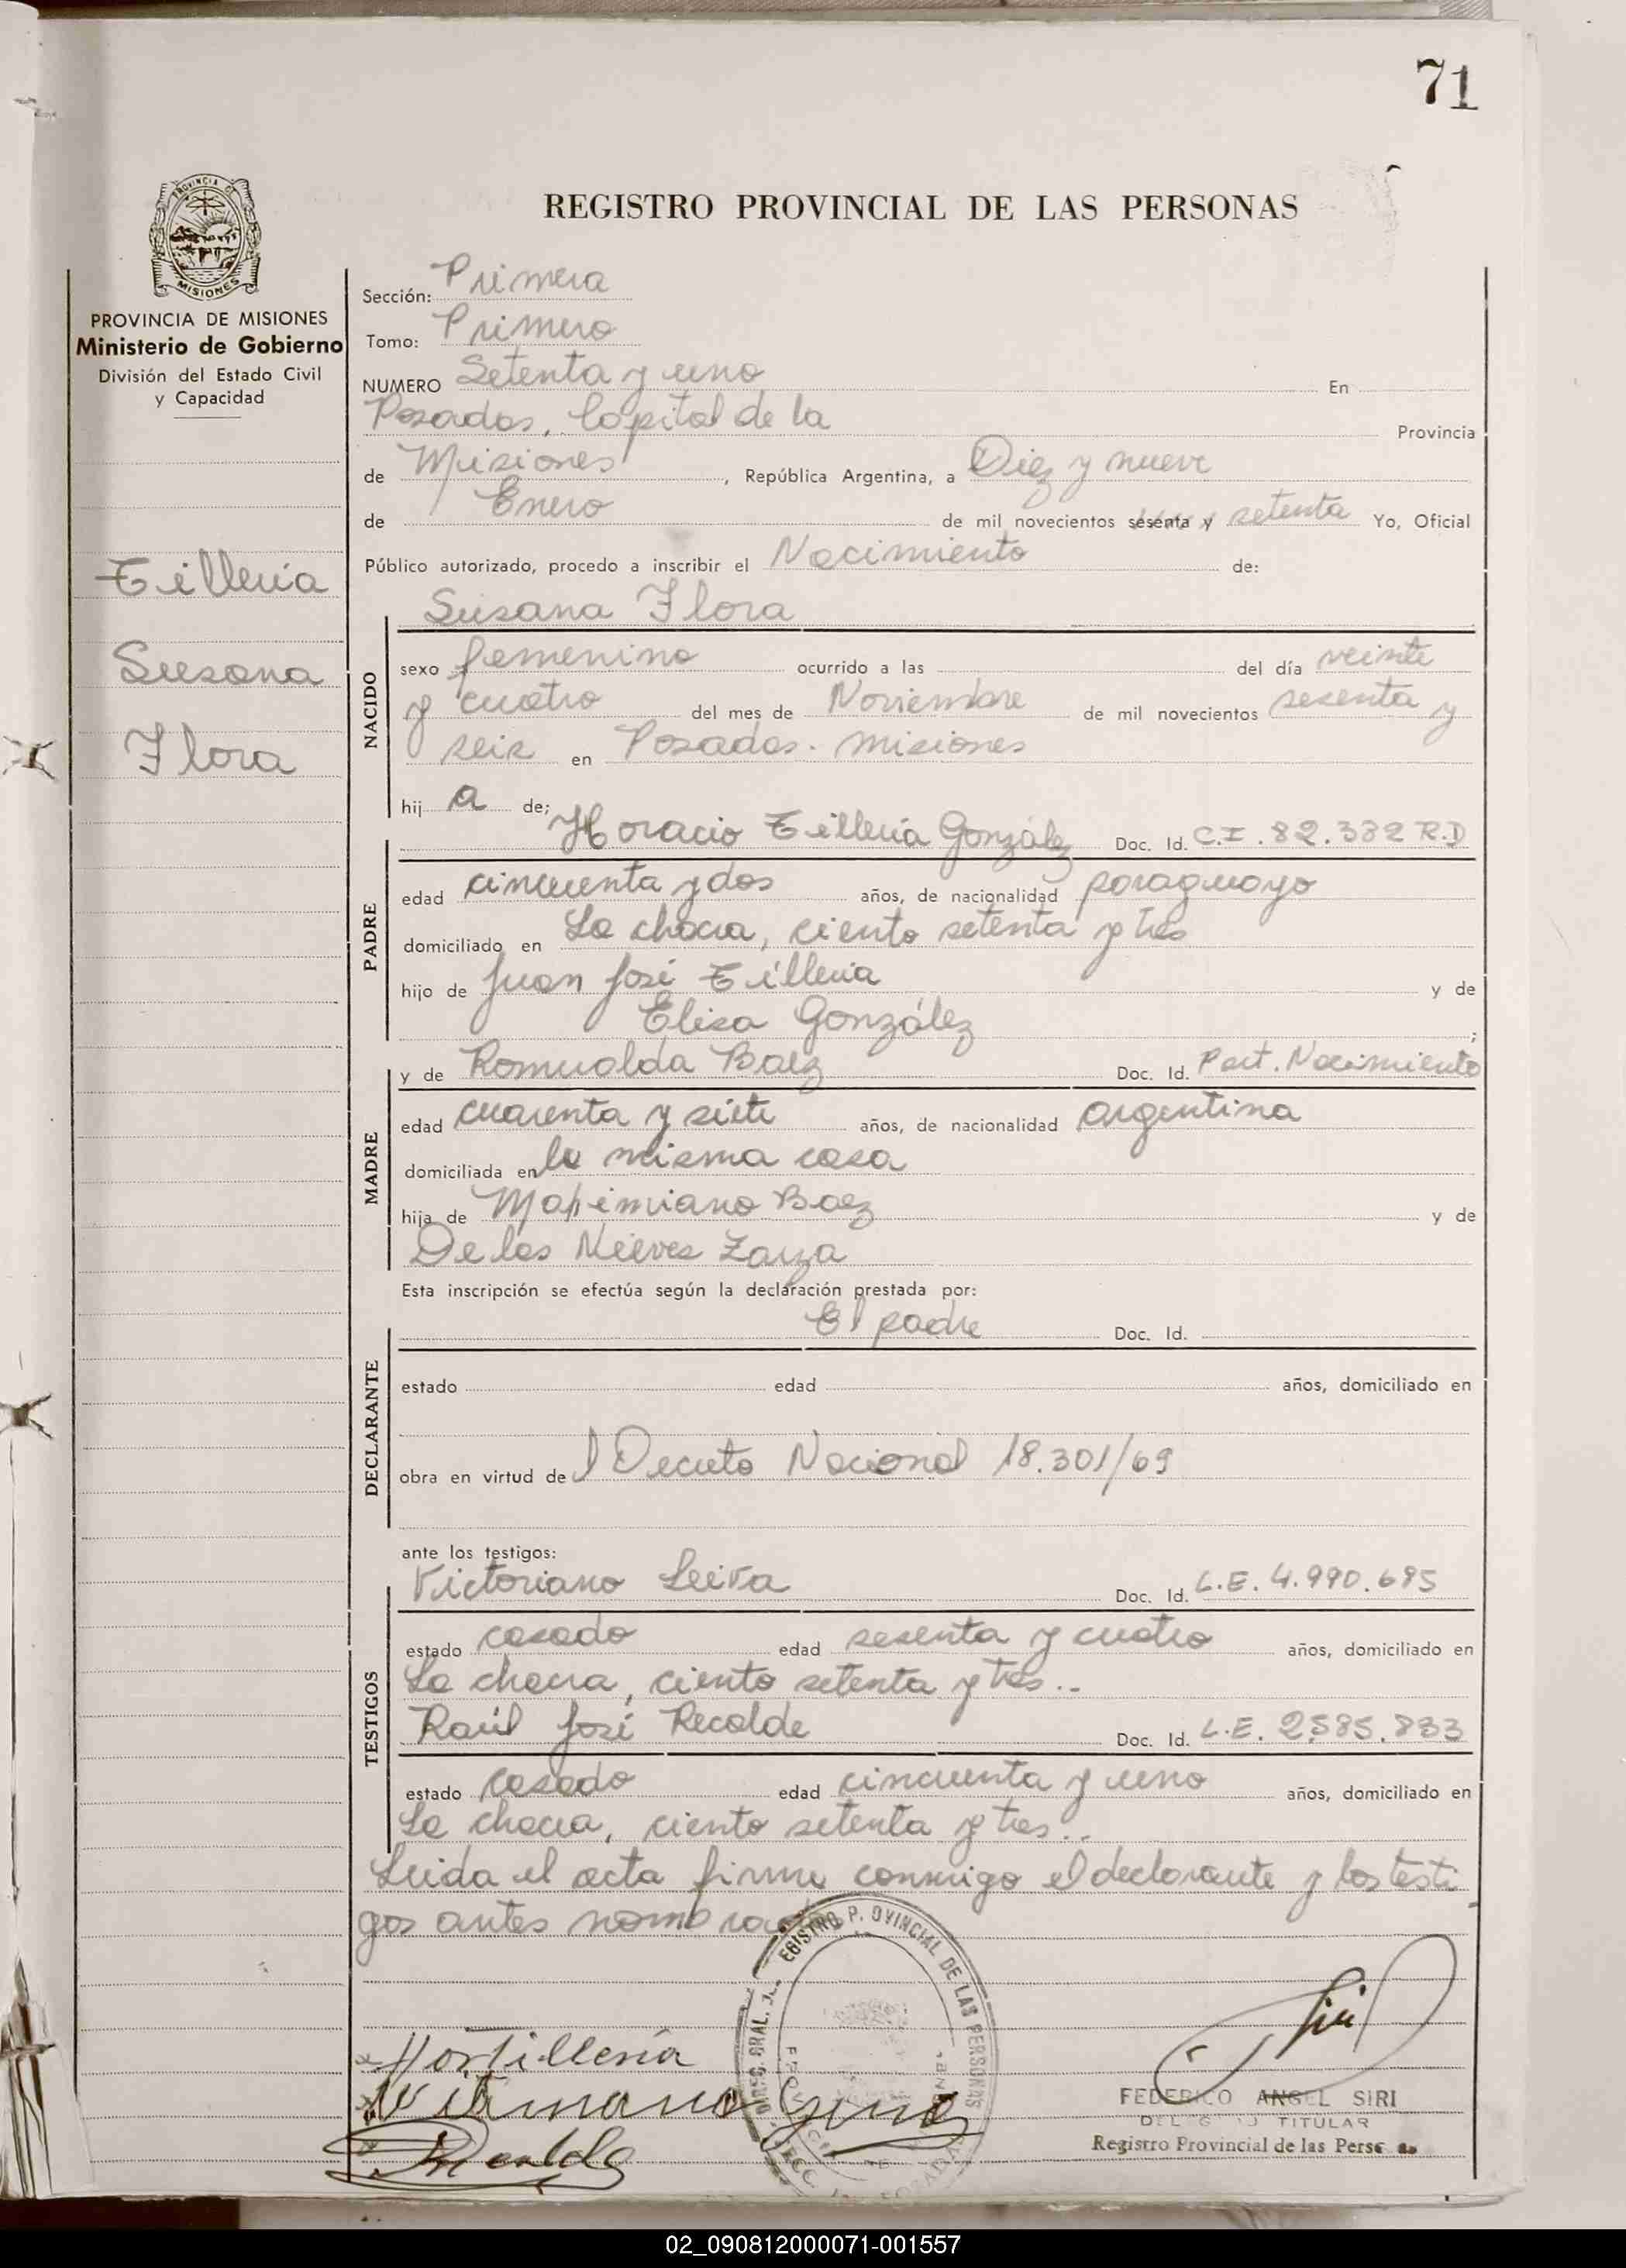 71
REGISTRO PROVINCIAL DE LAS PERSONAS
PROVINCIA DE MISIONES
Ministerio de Gobierno
División del Estado Civil
y Capacidad
Tillería
Susana
Flora
Sección: Primera
Tomo: Primero
NUMERO Setenta y uno En
Posadas, Capital de la Provincia
de Misiones, República Argentina, a Diez y nueve
de Enero de mil novecientos sesenta y setenta Yo, Oficial
Público autorizado, procedo a inscribir el Nacimiento de:
Susana Flora
NACIDO
sexo femenino ocurrido a las del día veinte
y cuatro del mes de Noviembre de mil novecientos sesenta y
seis en Posadas. Misiones
hij a de;
PADRE
Horacio Tillería González Doc. Id. C.I. 82.332 R.D
edad cincuenta y dos años, de nacionalidad paraguayo
domiciliado en La chacra, ciento setenta y tres
hijo de Juan José Tillería y de
Elisa González ;
MADRE
y de Romualda Baez Doc. Id. Part. Nacimiento
edad cuarenta y siete años, de nacionalidad argentina
domiciliada en la misma casa
hija de Maximiano Baez y de
De las Nieves Zarza
Esta inscripción se efectúa según la declaración prestada por:
DECLARANTE
El padre Doc. Id.
estado edad años, domiciliado en
obra en virtud de l Decreto Nacional 18.301/69
ante los testigos:
TESTIGOS
Victoriano Leiva Doc. Id. L.E. 4.990.695
estado casado edad sesenta y cuatro años, domiciliado en
La chacra, ciento setenta y tres..
Raúl José Recalde Doc. Id. L.E. 2.585.833
estado casado edad cincuenta y uno años, domiciliado en
La chacra, ciento setenta y tres..
Leida el acta firma conmigo el declarante y los testi
gos antes nombrados
REGISTRO PROVINCIAL DE LAS PERSONAS
FEDERICO ANGEL SIRI
DELEGADO TITULAR
Registro Provincial de las Personas
02_090812000071-001557